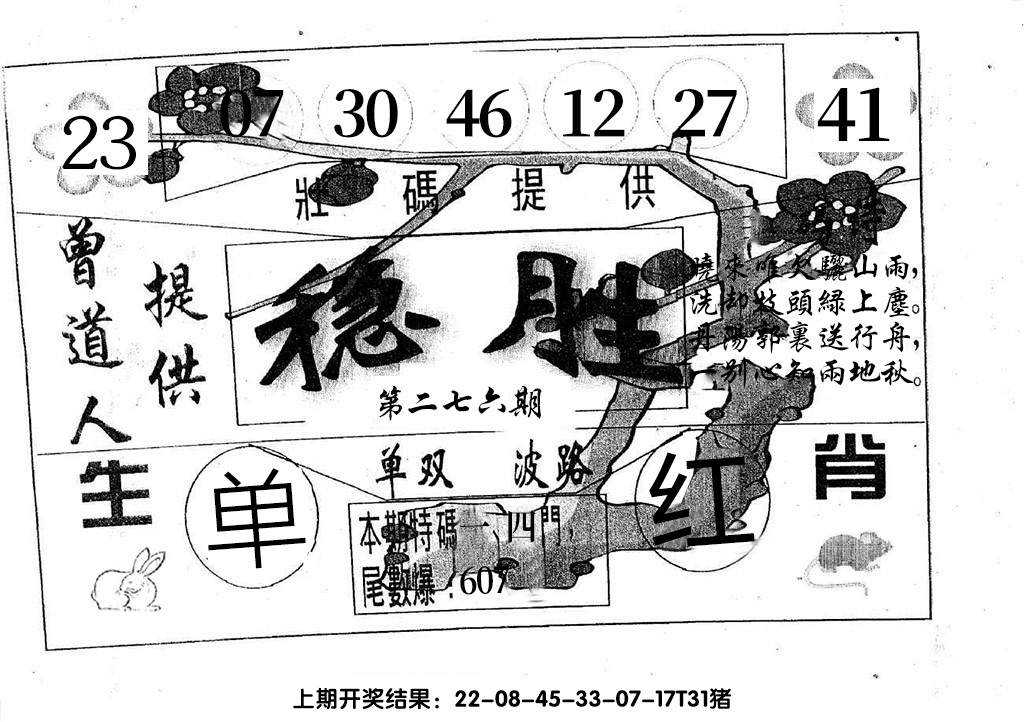 23 07 30 46 12 27 41
壯碼提供
曾道人
提供
稳胜
第二七六期
曉來唯欠驪山雨，
洗却枝頭綠上塵。
丹陽郭裏送行舟，
一别心知兩地秋。
单双 波路
生肖
单
红
本期特碼一、四門，
尾數爆：607
上期开奖结果：22-08-45-33-07-17T31猪